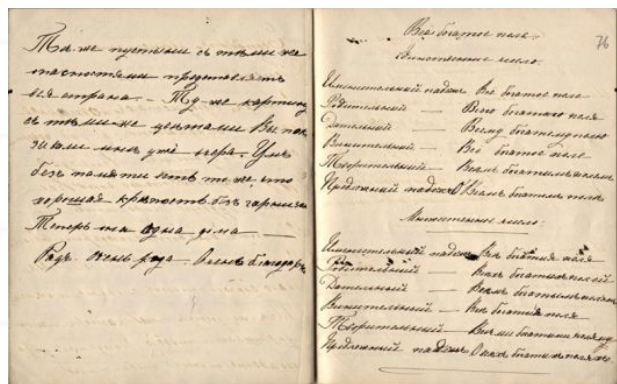 Та же пустыни съ тѣми же
пастостями представлять
вся страна. — Ту же картину
съ тѣми же цвѣтами Вы пока
зывали мнѣ уже вчера. Умъ
безъ памяти есть то же, что
хорошая крѣпость безъ гарнизона
Теперь она одна дома —
Радъ. Очень рада. Очень благодаренъ
76
Всё богатое поле.
Единственное число.
Именительный падежъ Всё богатое поле
Родительскій — Всего богатаго поля
Дательный — Всему богатому полю
Винительный — Всё богатое поле
Творительный — Всѣмъ богатымъ полемъ
Предложный падежъ О Всёмъ богатомъ полѣ
Множественное число.
Именительный падежъ Всѣ богатыя поля
Родительный — Всѣхъ богатыхъ полей
Дательный — Всѣмъ богатымъ полямъ
Винительный — Всѣ богатыя поля
Творительный — Всѣми богатыми полями
Предложный падежъ О всѣхъ богатыхъ поляхъ.